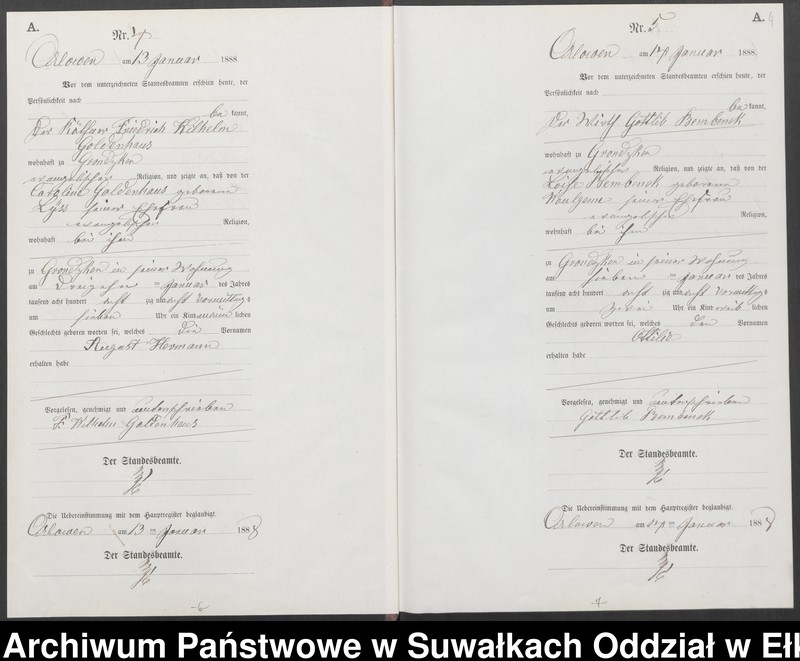 A.
Nr. 4
Orlowen am 13 Januar 1888.
Vor dem unterzeichneten Standesbeamten erschien heute, der
Persönlichkeit nach
be kannt,
Der Käthner Friedrich Wilhelm
Goldenhaus
wohnhaft zu Grondzken
evangelischer Religion, und zeigte an, daß von der
Caroline Goldenhaus geborenen
Lyss seiner Ehefrau
evangelischen Religion,
wohnhaft bei ihm
zu Grondzken in seiner Wohnung
am Dreizehn ten Januar des Jahres
tausend acht hundert acht zig und acht Vormittags
um sieben Uhr ein Kind männ lichen
Geschlechts geboren worden sei, welches die Vornamen
August Hermann
erhalten habe
Vorgelesen, genehmigt und unterschrieben
F. Wilhelm Goldenhaus
Der Standesbeamte.
Die Uebereinstimmung mit dem Hauptregister beglaubigt.
Orlowen am 13 ten Januar 1888
Der Standesbeamte.
-6-
A. 4
Nr. 5
Orlowen am 14 Januar 1888.
Vor dem unterzeichneten Standesbeamten erschien heute, der
Persönlichkeit nach
be kannt,
Der Wirth Gottlieb Bembenek
wohnhaft zu Grondzken
evangelischer Religion, und zeigte an, daß von der
Bembenek geborenen
seiner Ehefrau
evangelischen Religion,
wohnhaft bei ihm
zu Grondzken in seiner Wohnung
am sieben ten Januar des Jahres
tausend acht hundert acht zig und acht Vormittags
um zwei Uhr ein Kind weib lichen
Geschlechts geboren worden sei, welches den Vornamen
Ottilie
erhalten habe
Vorgelesen, genehmigt und unterschrieben
Gottlieb Bembenek
Der Standesbeamte.
Die Uebereinstimmung mit dem Hauptregister beglaubigt.
Orlowen am 14 ten Januar 1888
Der Standesbeamte.
-7-
Archiwum Państwowe w Suwałkach Oddział w Ełk